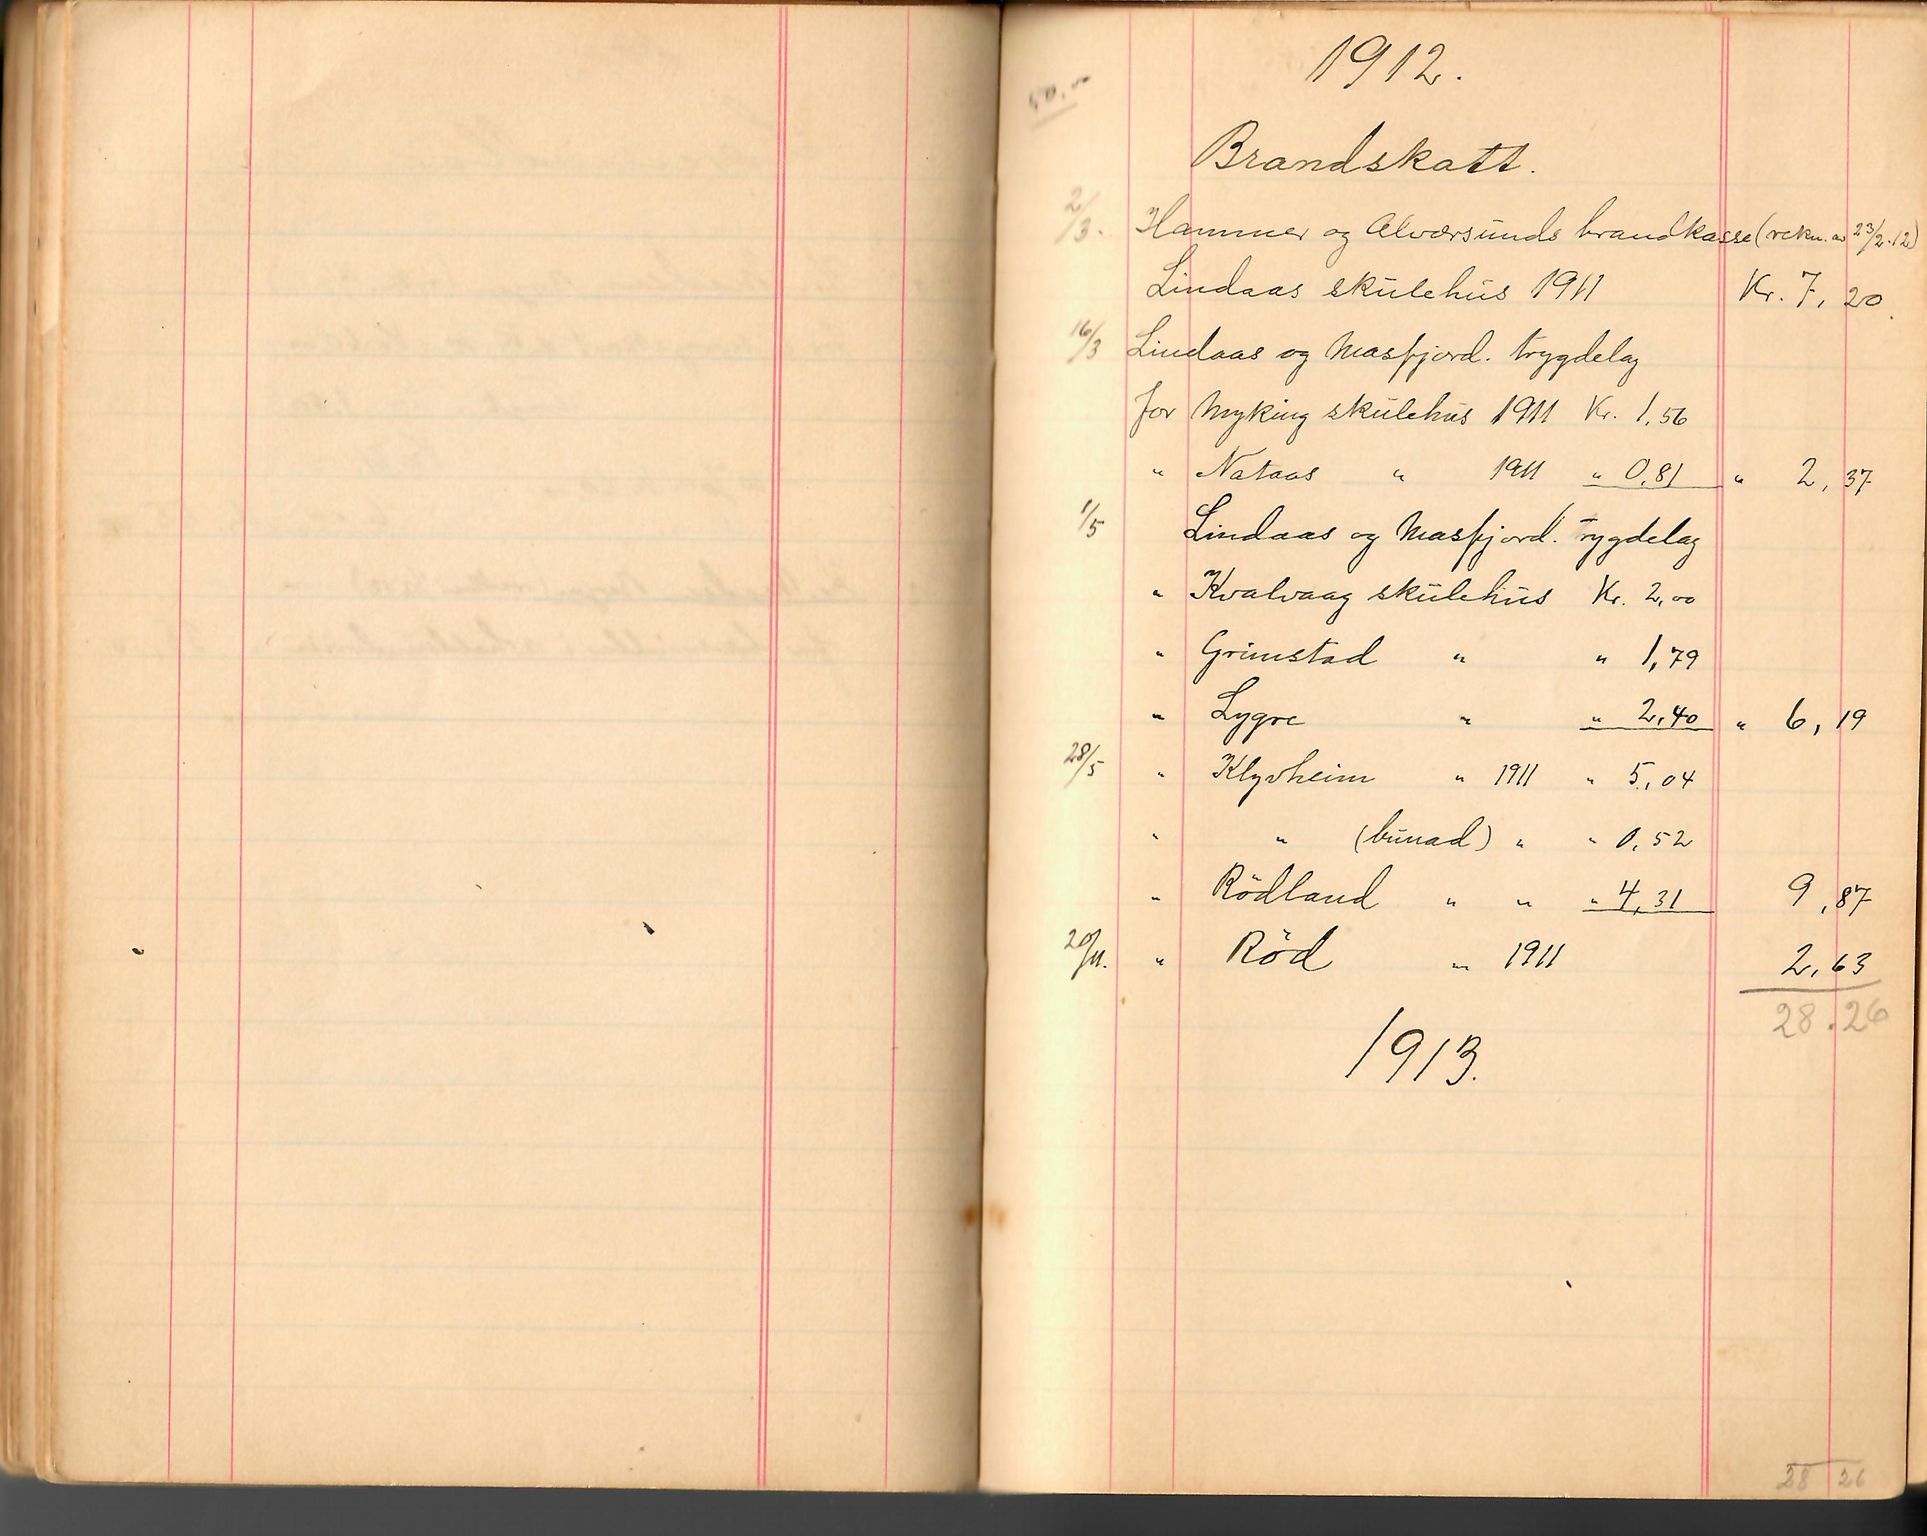 50.00
1912.
Brandskatt.
2/3. Hammer og Alværsunds brandkasse (rekn. av 23/2.12)
Lindaas skulehus 1911 Kr. 7,20.
16/3 Lindaas og Masfjord. trygdelag
for Myking skulehus 1911 Kr. 1,56
" Nataas " 1911 " 0,81 " 2,37
1/5 Lindaas og Masfjord. Trygdelag
" Kvalvaag skulehus Kr. 2,00
" Grimstad " " 1,79
" Lygre " " 2,40 " 6,19
28/5 " Klyvheim " 1911 " 5,04
" " (bunad) " " 0,52
" Rödland " " " 4,31 9,87
20/11. " Röd " 1911 2,63
28.26
1913.
28 26